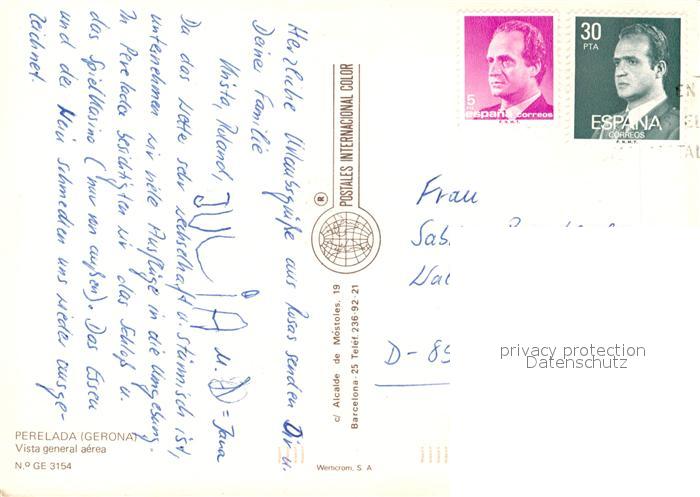 Herzliche Urlaubsgrüße aus Rosas senden Dir u.
Deiner Familie
Christa, Roland, JULIA u. = Jana
Da das Wetter sehr wechselhaft u. stürmisch ist,
unternehmen wir viele Ausflüge in die Umgebung.
In Perelada besichtigten wir das Schloß u.
das Spielkasino (nur von außen). Das Essen
und der Wein schmecken uns wieder ausge-
zeichnet.
PERELADA (GERONA)
Vista general aérea
N.º GE 3154
® POSTALES INTERNACIONAL COLOR
c/ Alcalde de Móstoles, 19
Barcelona-25 Teléf. 236-92-21
Werticrom, S. A
5
españa correos
F.N.M.T.
30
PTA
ESPAÑA
CORREOS
F.N.M.T.
EN
Frau
D-89
privacy protection
Datenschutz